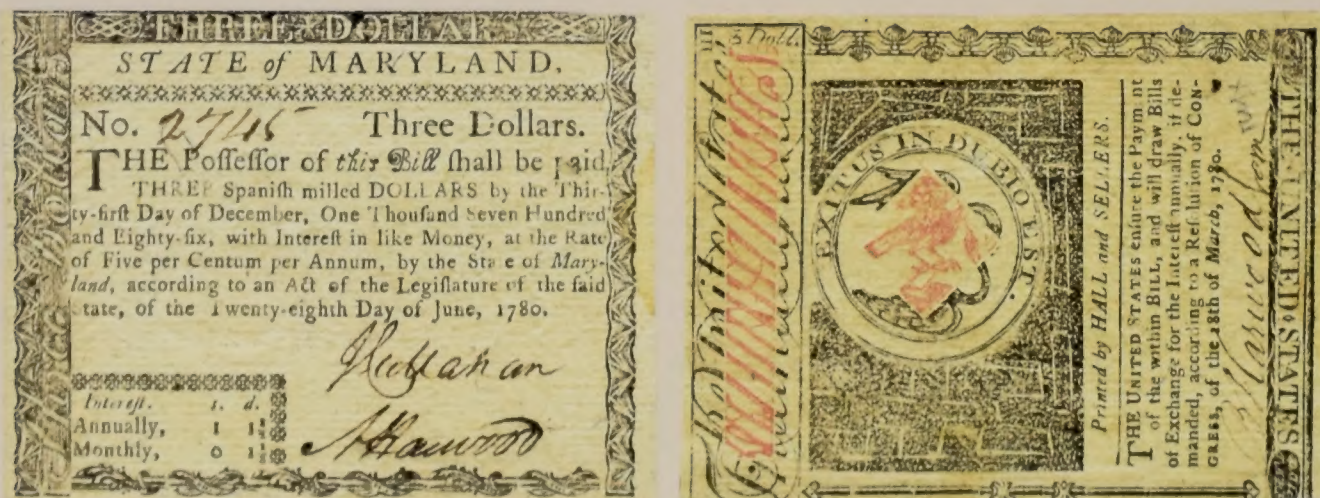 THREE DOLLARS
STATE of MARYLAND.
No. 2745 Three Dollars.
THE Poſſeſſor of this Bill ſhall be paid,
THREE Spaniſh milled DOLLARS by the Thir-
ty-firſt Day of December, One Thouſand Seven Hundred
and Eighty-ſix, with Intereſt in like Money, at the Rate
of Five per Centum per Annum, by the State of Mary-
land, according to an Act of the Legiſlature of the ſaid
State, of the Twenty-eighth Day of June, 1780.
J Callahan
Intereſt. s. d.
Annually, 1 1½
Monthly, 0 1⅛
A Harwood
III
3 Doll.
EXITUS IN DUBIO EST.
Printed by HALL and SELLERS.
THE UNITED STATES enſure the Paym nt
of the within BILL, and will draw Bills
of Exchange for the Intereſt annually, if de-
manded, according to a Reſolution of CON-
GRESS, of the 18th of March, 1780.
THE UNITED STATES